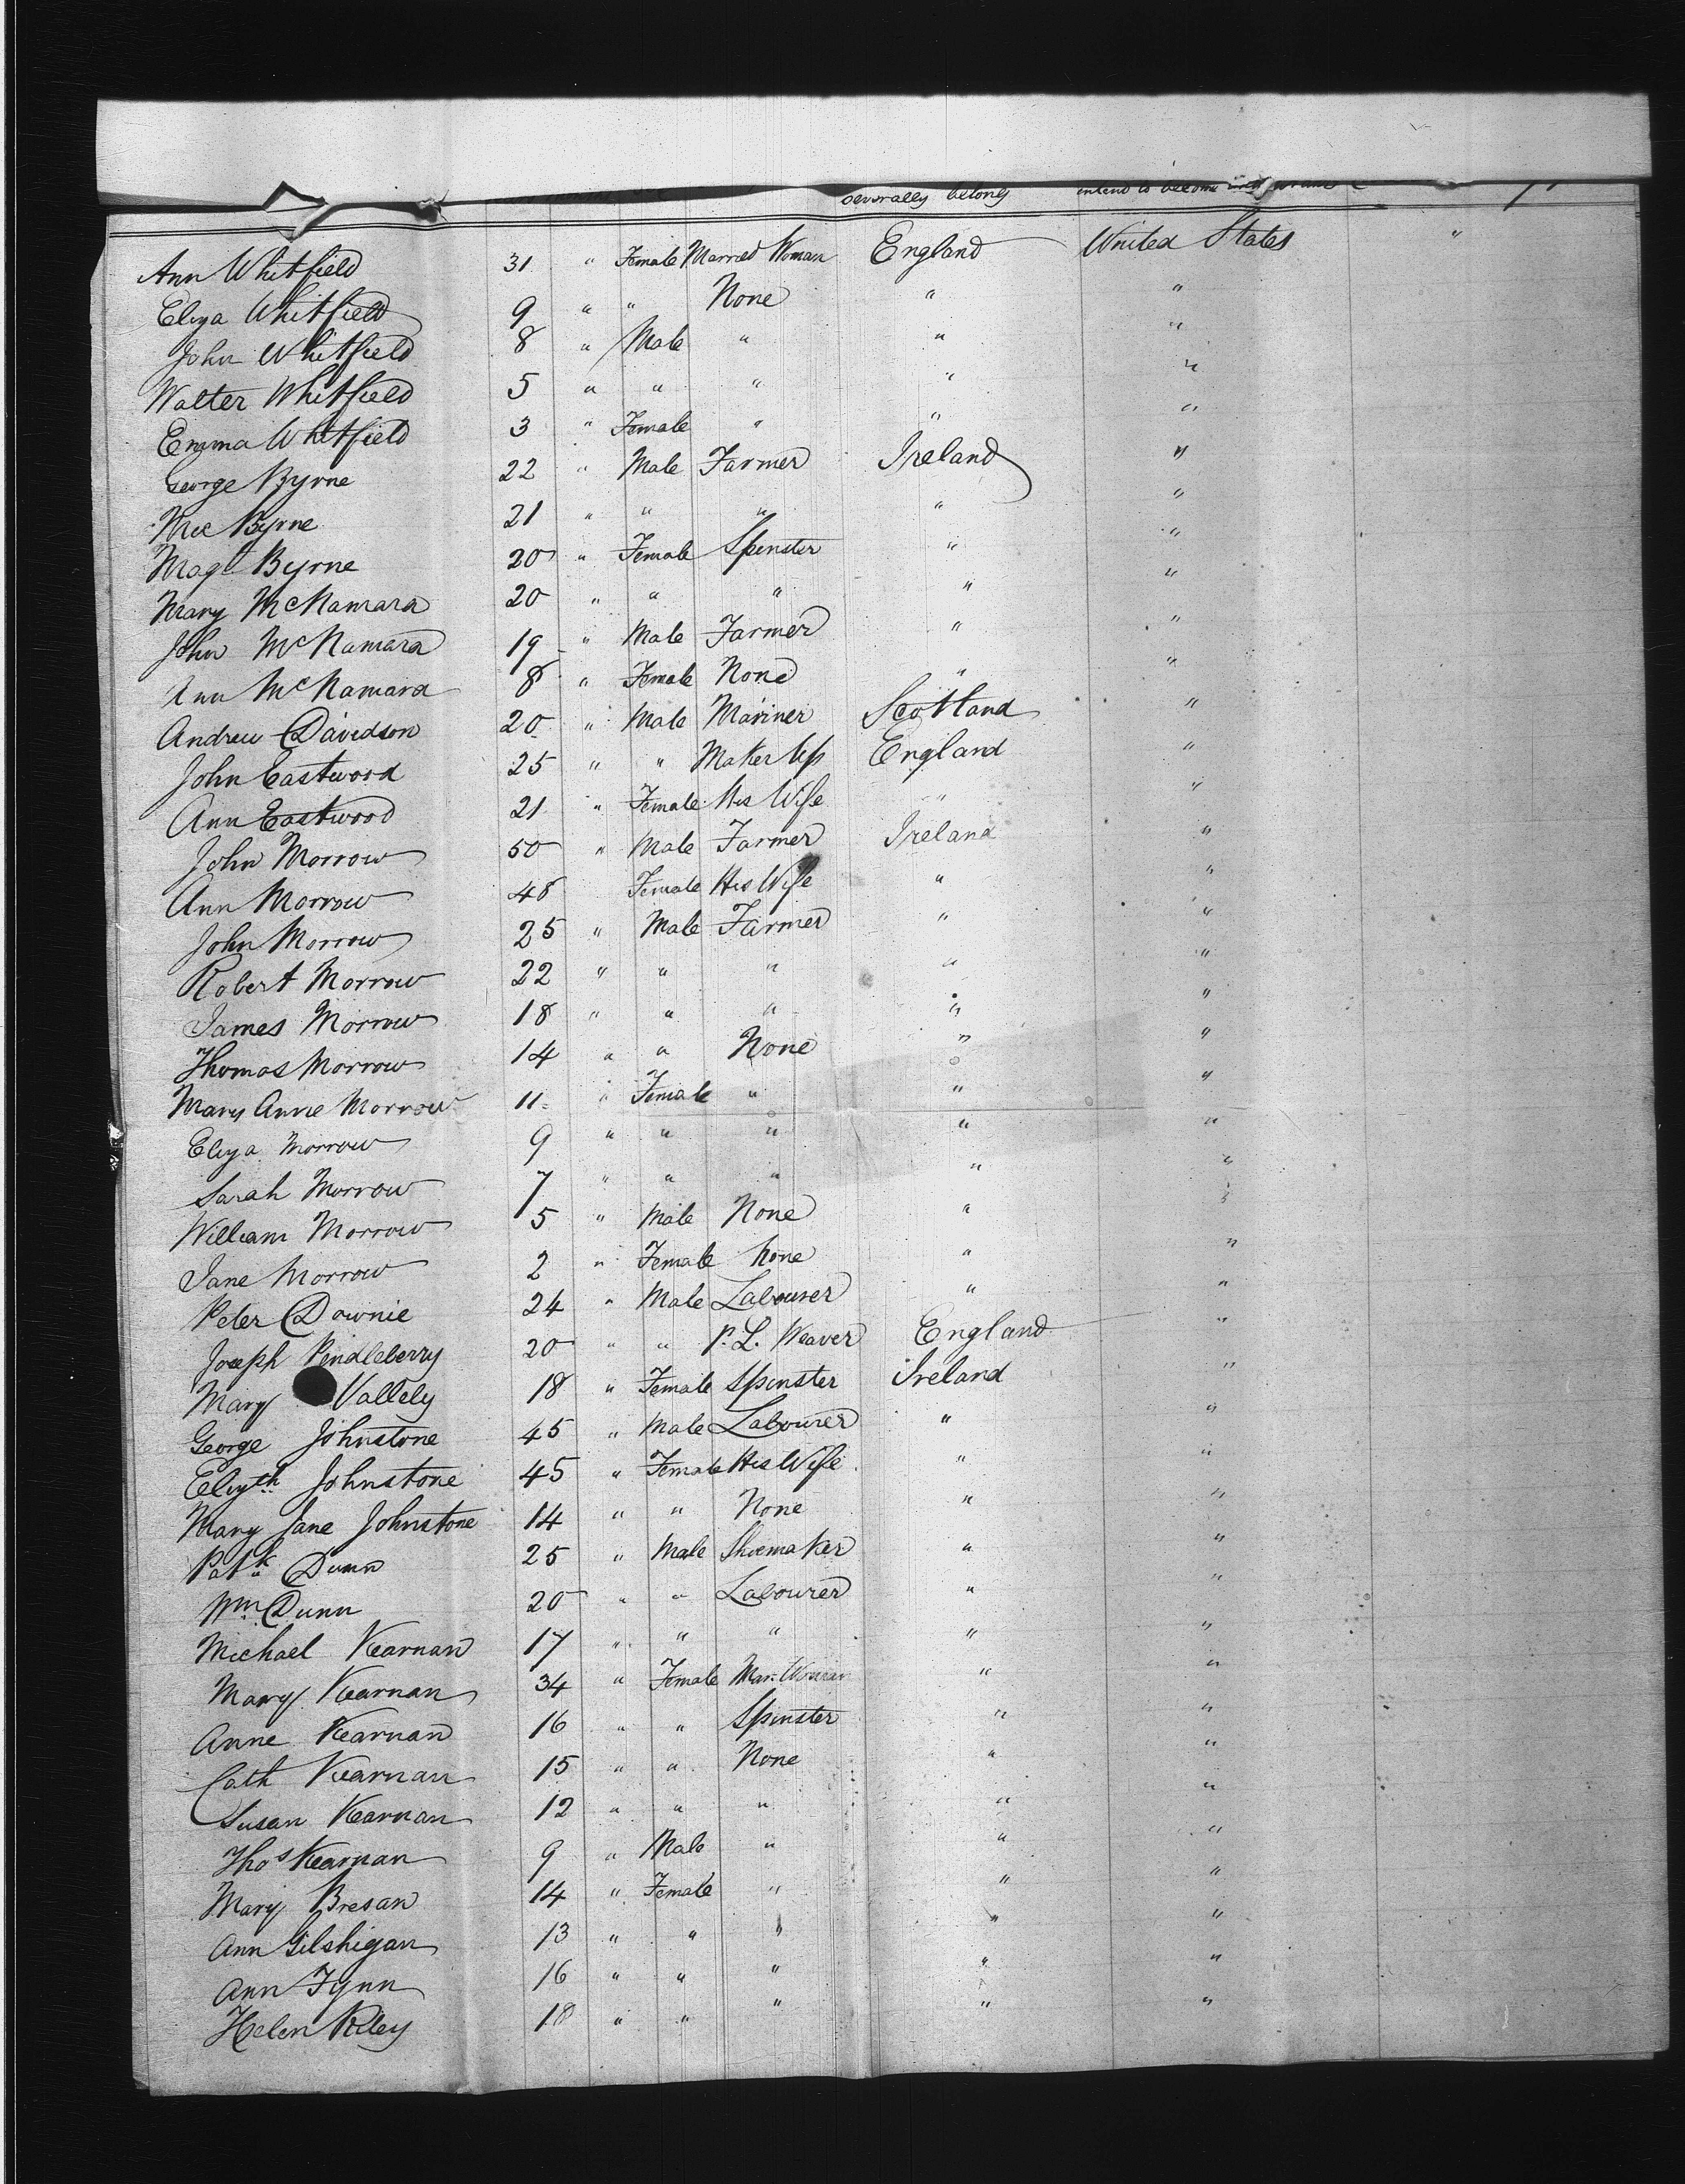 severally belong intend to become
Ann Whitfield 31 " Female Married Woman England United States "
Eliza Whitfield 9 " " None " "
John Whitfield 8 " Male " " "
Walter Whitfield 5 " " " " "
Emma Whitfield 3 " Female " " "
George Byrne 22 " Male Farmer Ireland "
Byrne 21 " " " " "
Magt Byrne 20 " Female Spinster " "
Mary McNamara 20 " " " " "
John McNamara 19 " Male Farmer " "
Ann McNamara 8 " Female None " "
Andrew Davidson 20 " Male Mariner Scotland "
John Eastwood 25 " " Maker Up England "
Ann Eastwood 21 " Female His Wife " "
John Morrow 50 " Male Farmer Ireland "
Ann Morrow 48 Female His Wife " "
John Morrow 25 " Male Farmer " "
Robert Morrow 22 " " " " "
James Morrow 18 " " " " "
Thomas Morrow 14 " " None " "
Mary Anne Morrow 11 " Female " " "
Eliza Morrow 9 " " " " "
Sarah Morrow 7 " " " " "
William Morrow 5 " Male None " "
Jane Morrow 2 " Female None " "
Peter Downie 24 " Male Labourer " "
Joseph Pendleberry 20 " " P. L. Weaver England "
Mary Vallely 18 " Female Spinster Ireland "
George Johnstone 45 " Male Labourer " "
Elizth Johnstone 45 " Female His Wife " "
Mary Jane Johnstone 14 " " None " "
Patk Dunn 25 " Male Shoemaker " "
Wm Dunn 20 " " Labourer " "
Michael Kearnan 17 " " " " "
Mary Kearnan 34 " Female Mar. Woman " "
Anne Kearnan 16 " " Spinster " "
Cath Kearnan 15 " " None " "
Susan Kearnan 12 " " " " "
Thos Kearnan 9 " Male " " "
Mary Bresan 14 " Female " " "
Ann Gilshigan 13 " " " " "
Ann Fynn 16 " " " " "
Helen Riley 18 " " " " "